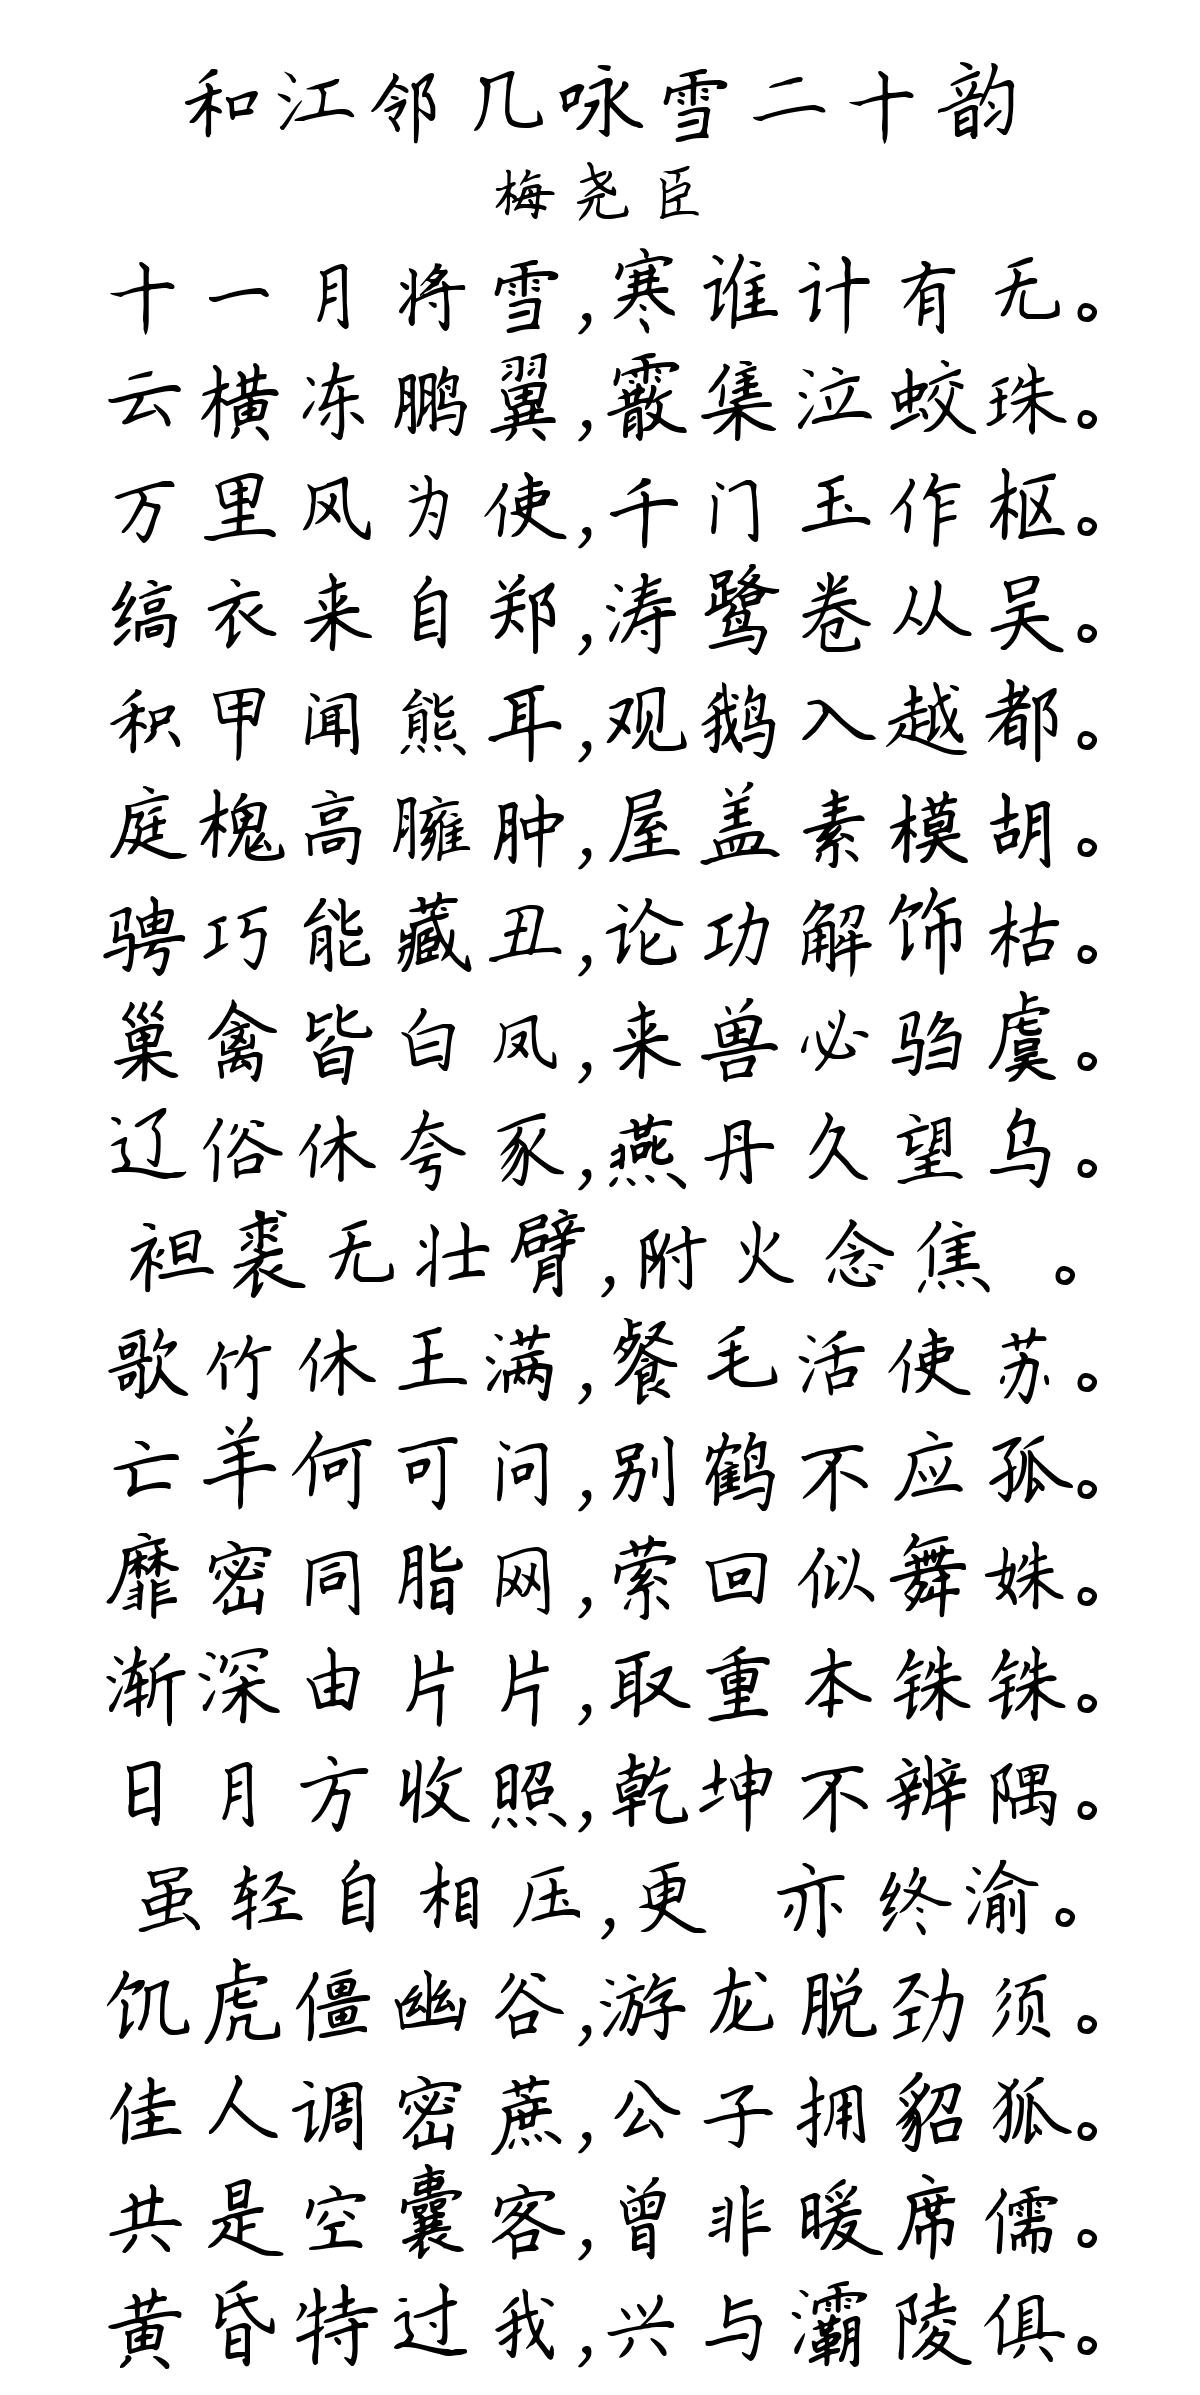 和江邻几咏雪二十韵
梅尧臣
十一月将雪,寒谁计有无。
云横冻鹏翼,霰集泣蛟珠。
万里风为使,千门玉作枢。
缟衣来自郑,涛鹭卷从吴。
积甲闻熊耳,观鹅入越都。
庭槐高臃肿,屋盖素模胡。
骋巧能藏丑,论功解饰枯。
巢禽皆白凤,来兽必驺虞。
辽俗休夸豕,燕丹久望乌。
袒裘无壮臂,附火念焦 。
歌竹休王满,餐毛活使苏。
亡羊何可问,别鹤不应孤。
靡密同脂网,萦回似舞姝。
渐深由片片,取重本铢铢。
日月方收照,乾坤不辨隅。
虽轻自相压,更 亦终渝。
饥虎僵幽谷,游龙脱劲须。
佳人调密蔗,公子拥貂狐。
共是空囊客,曾非暖席儒。
黄昏特过我,兴与灞陵俱。